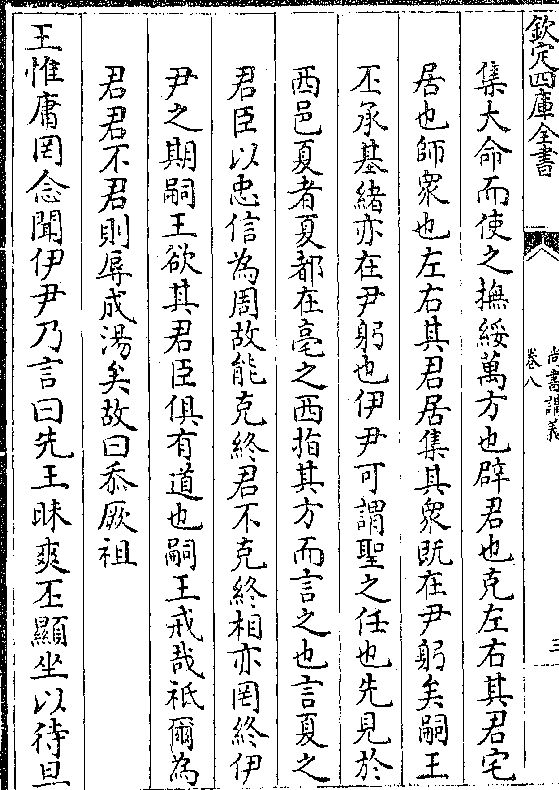 欽定四庫全書
尚書講義
卷八
三
集大命而使之撫綏萬方也辟君也克左右其君宅
居也師衆也左右其君居集其衆既在尹躬矣嗣王
丕承基緒亦在尹躬也伊尹可謂聖之任也先見於
西邑夏者夏都在亳之西指其方而言之也言夏之
君臣以忠信為周故能克終君不克終相亦罔終伊
尹之期嗣王欲其君臣俱有道也嗣王戒哉祗爾為
君君不君則辱成湯矣故曰忝厥祖
王惟庸罔念聞伊尹乃言曰先王昧爽丕顯坐以待旦